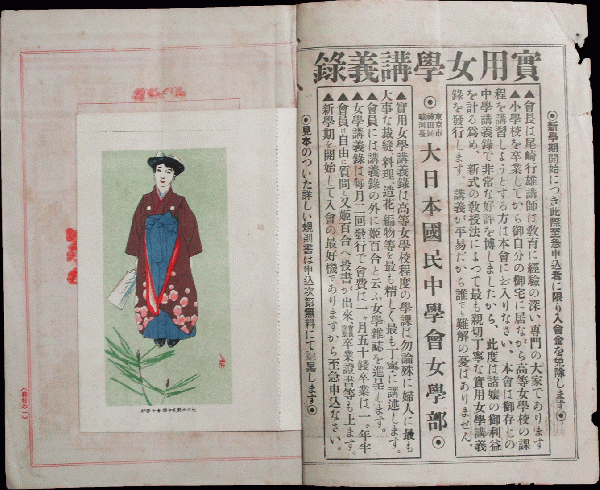 實用女學講義錄
◉新學期開始につき此際至急申込者に限り入會金を免除します◉
▲會長は尾崎行雄講師は敎育に經驗の深い專門の大家であります
▲小學校を卒業してから御自分の御宅に居ながら高等女學校の課
程を講習しようとする方は本會にお入りなさい、本會は御存じの
中學講義錄で非常な好評を博しましたから、此度は諸孃の御利益
を計る爲め、新式の敎授法によつて最も親切丁寧な實用女學講義
錄を發行します。講義が平易だから誰でも難解の憂はありません、
東京市
神田區
◉大日本國民中學會女學部◉
▲實用女學講義錄は高等女學校程度の學課は勿論殊に婦人に最も
大事な裁縫、料理、造花、編物等を最も精しく最も丁寧に講述します。
▲會員には講義錄の外に姬百合と云ふ女學雜誌を進呈します。
▲女學講義錄は每月二回發行で會費は一ヶ月五十錢卒業は一ヶ年半
▲會員は自由に質問も又姬百合へ投書が出來
卒業證書等も上ます。
▲新學期を開始して入會の最好機でありますから至急申込なさい。
◉見本のついた詳しい規則書は申込次第無料にて
します◉